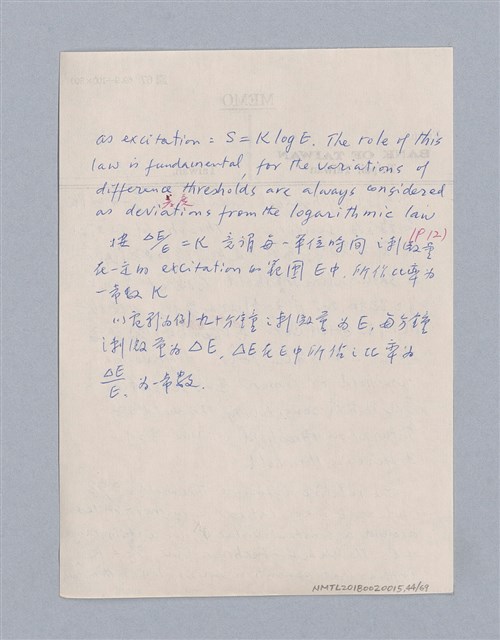 as excitation : S = K log E. The role of this
law is fundamental, for the variations of
difference thresholds are always considered
差度
as deviations from the logarithmic law
(P12)
按 ΔE/E = K 意謂每一單位時間之刺激量
在一定的 excitation 的範圍 E 中, 所佔比率為
一常數 K
以電影為例九十分鐘之刺激量為 E, 每分鐘
之刺激量為 ΔE, ΔE 在 E 中所佔之比率為
ΔE/E, 為一常數.
NMTL20180020015.44/69
MEMO
BANK OF TAIWAN